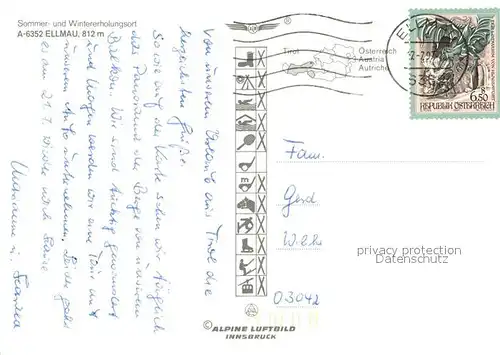 Sommer- und Wintererholungsort
A-6352 ELLMAU, 812 m
Von unserem Urlaub aus Tirol die
herzlichsten Grüße.
Sowie auf der Karte sehen wir täglich
das Panorama der Berge von unserem
Balkon. Wir sind richtig gewandert
und morgen werden wir eine Tour in
unserem Auto unternehmen. Leider geht
es am 21.7. wieder nach Hause
Marianne u.
Tirol
Österreich
Austria
Autriche
ELLMAU
6352
6.50
REPUBLIK ÖSTERREICH
Fam.
Gerd
03042
privacy protection
Datenschutz
© ALPINE LUFTBILD
INNSBRUCK